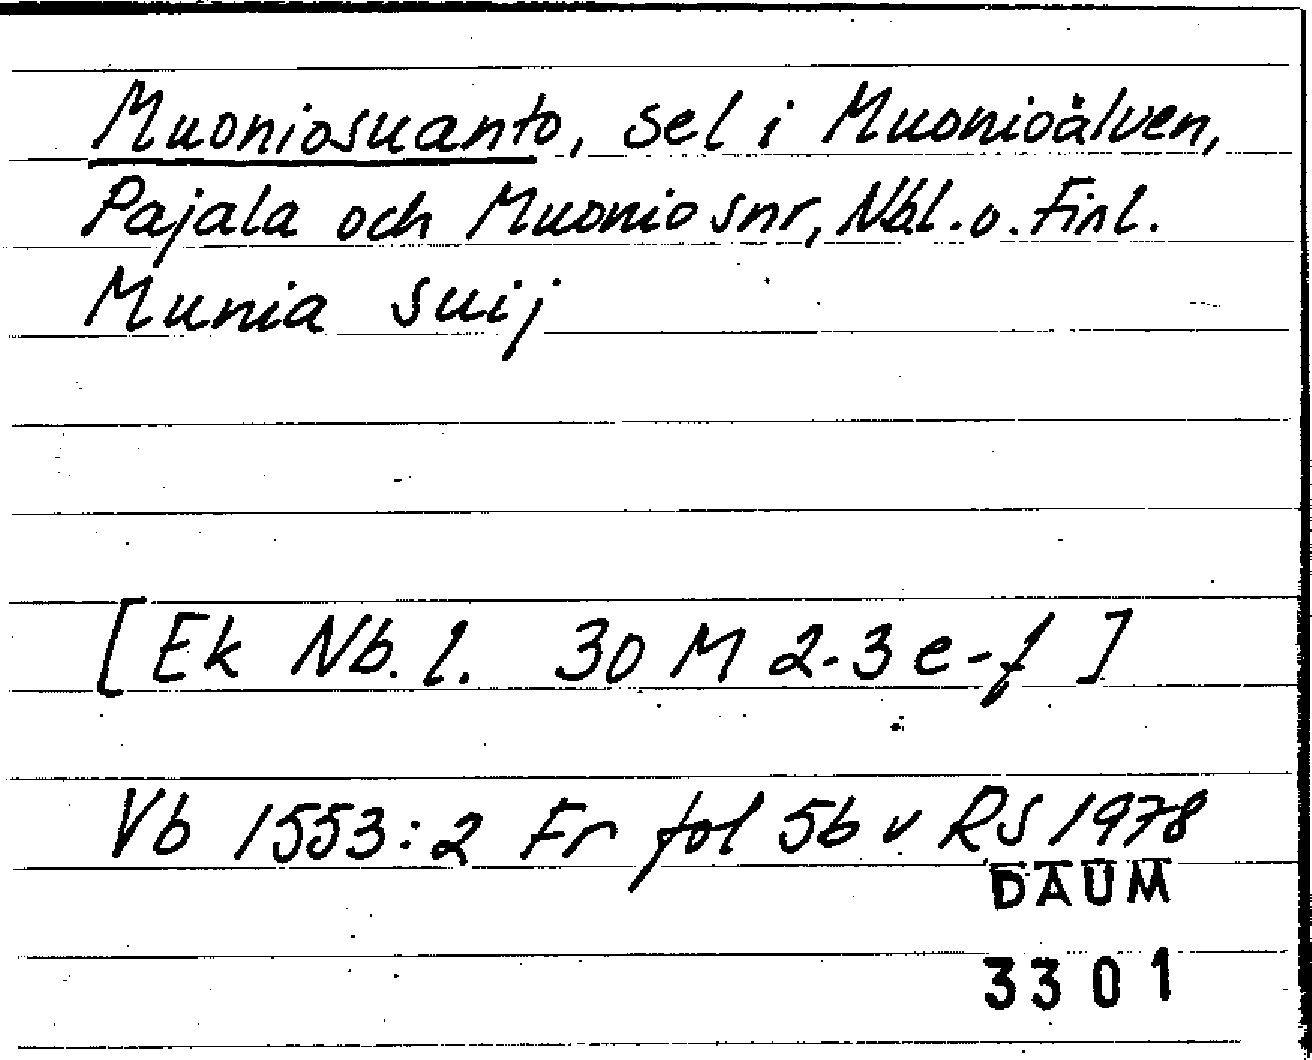 Muoniosuanto, sel i Muonioälven,
Pajala och Muonio snr, Nbl. o. Finl.
Munia suij
[Ek Nb. l. 30 M 2-3 e-f]
Vb 1553:2 Fr fol 56 v RS 1978
DAUM
3301